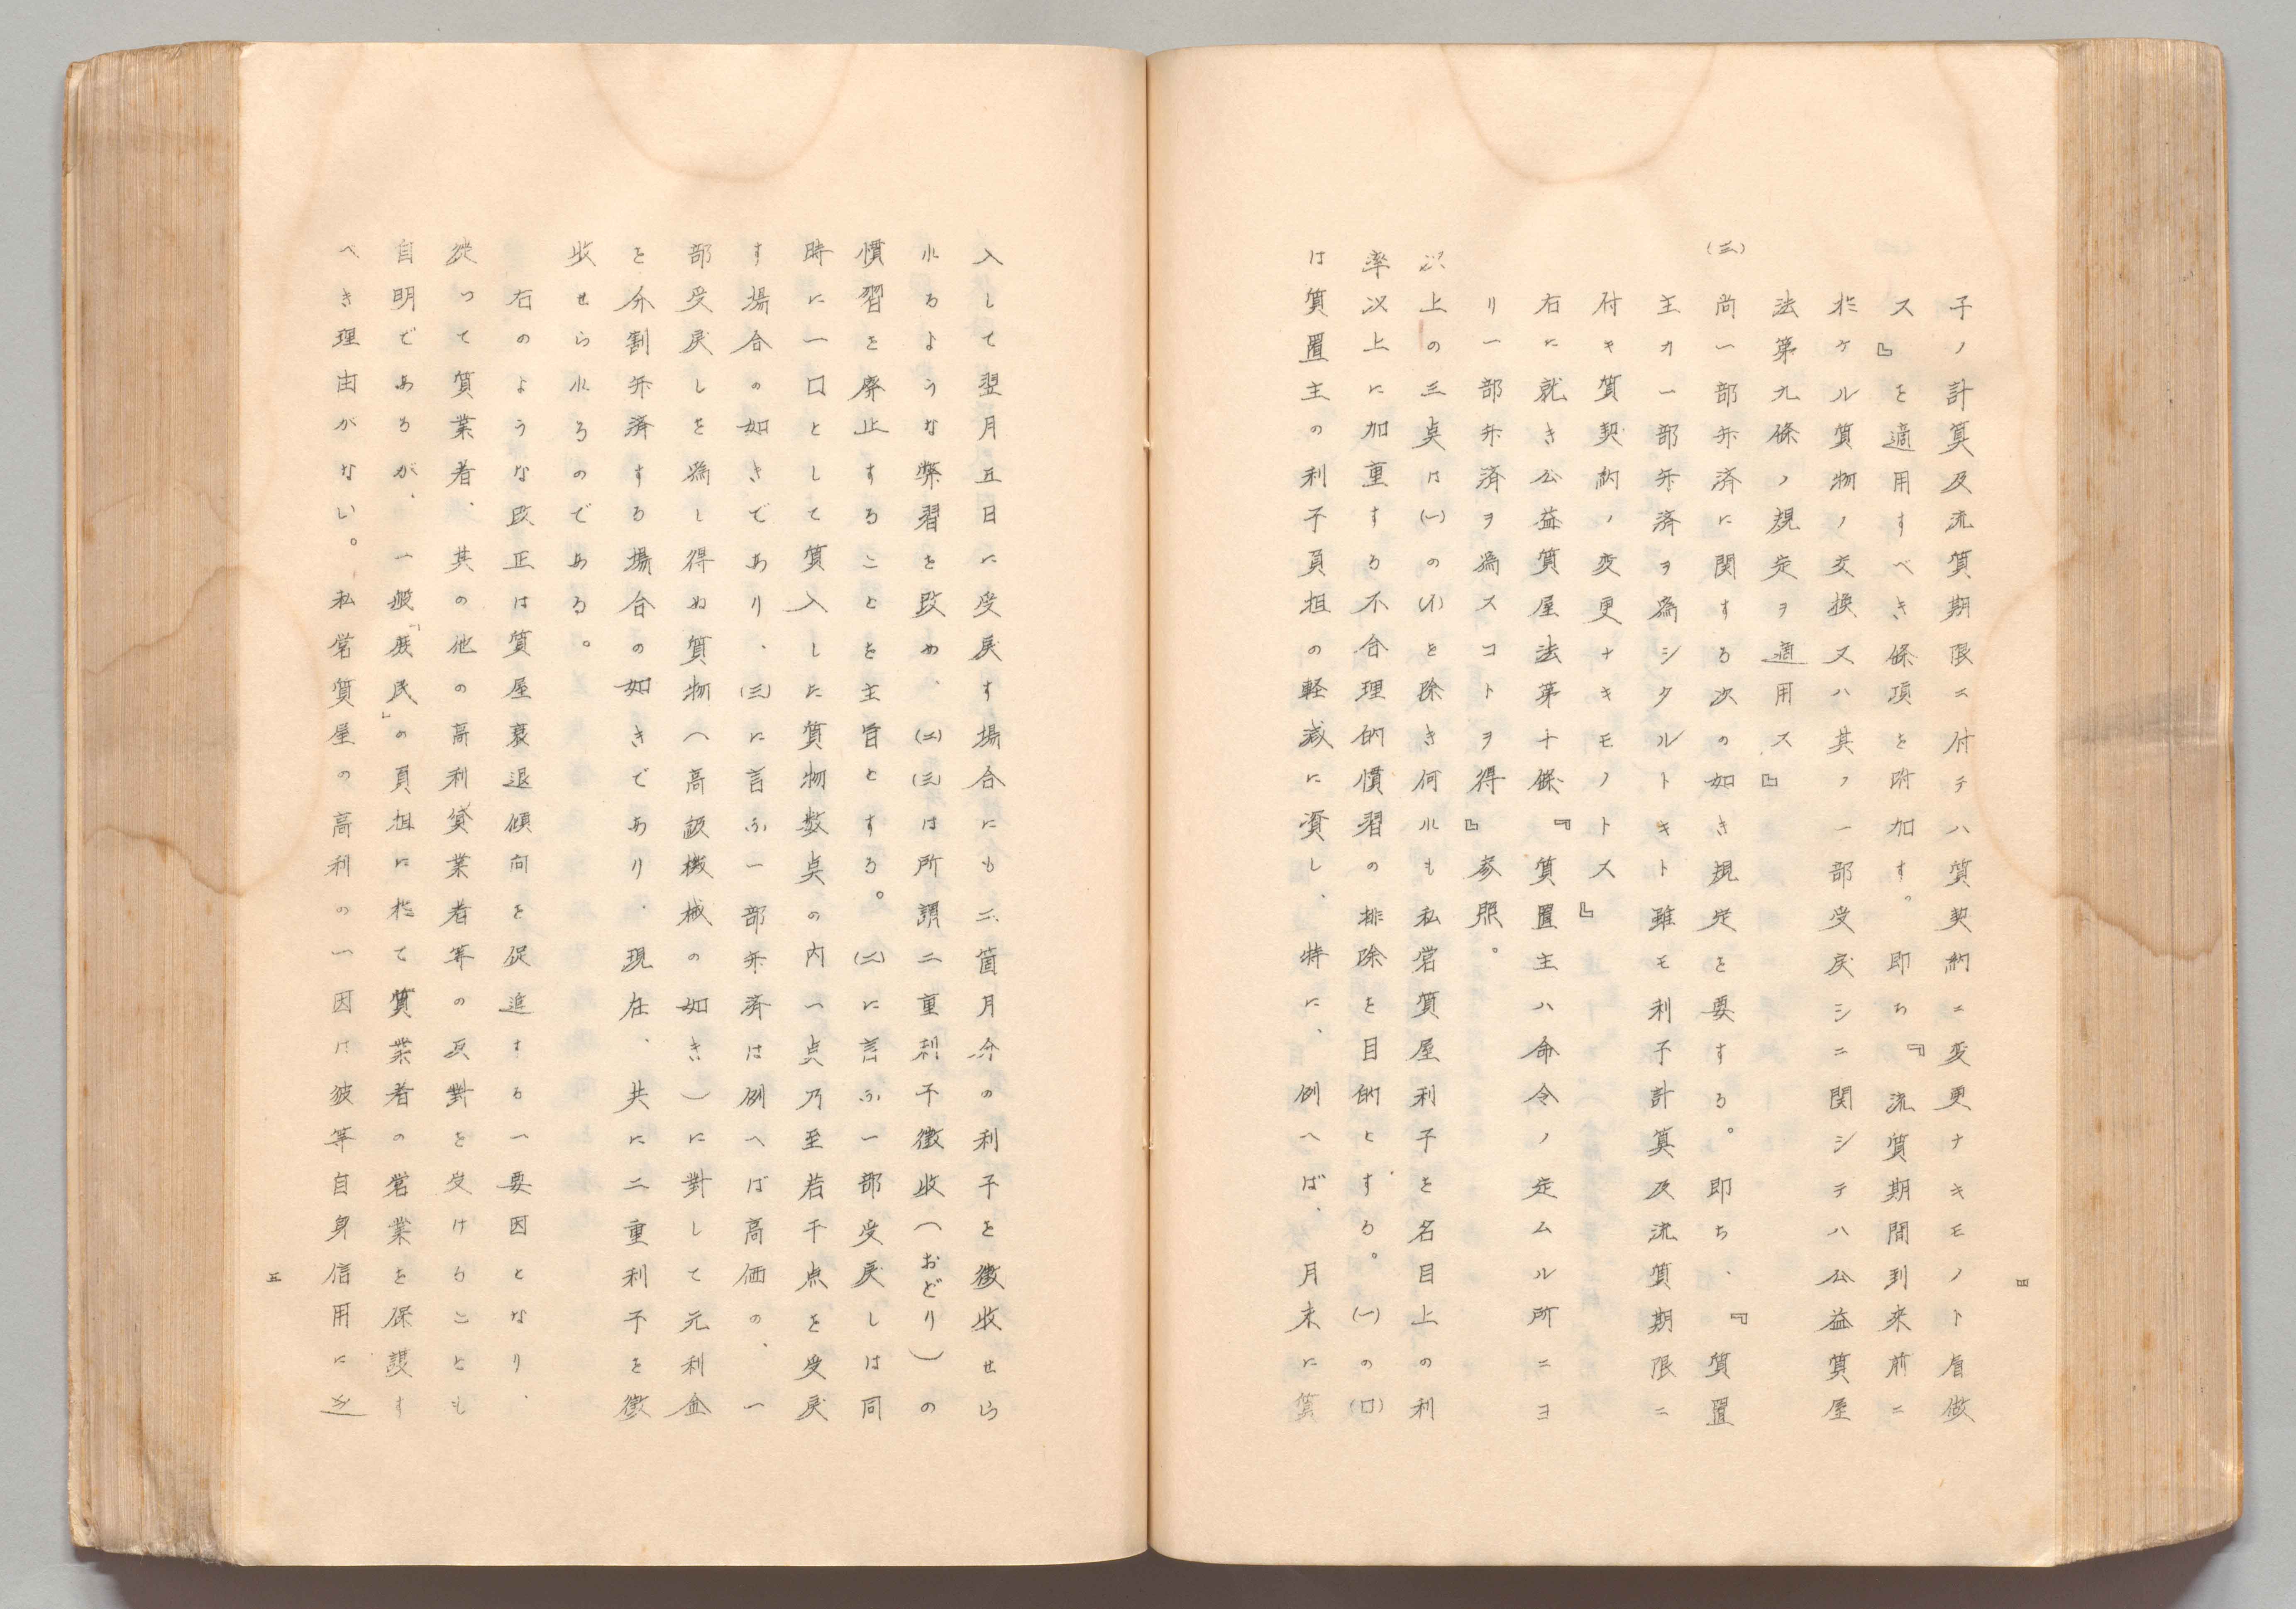 子ノ計算及流質期限ニ付テハ質契約ニ変更ナキモノト看做
ス』を適用すべき條項を附加す。即ち『流質期間到来前ニ
於ケル質物ノ交換又ハ其ノ一部受戻シニ関シテハ公益質屋
法第九條ノ規定ヲ適用ス』
(三)尚一部弁済に関する次の如き規定を要する。即ち、『質置
主カ一部弁済ヲ為シタルトキト雖モ利子計算及流質期限ニ
付キ質契約ノ変更ナキモノトス』
右に就き公益質屋法第十條『質置主ハ命令ノ定ムル所ニヨ
リ一部弁済ヲ為スコトヲ得』参照。
以上の三点は(一)の(イ)を除き何れも私営質屋利子を名目上の利
率以上に加重する不合理的慣習の排除を目的とする。(一)の(ロ)
は質置主の利子負担の軽減に資し、特に、例へば、月末に質
四
入して翌月五日に受戻す場合にも二箇月分の利子を徴收せら
れるような弊習を改め、(二)(三)は所謂二重利子徴收(おどり)の
慣習を廃止することを主旨とする。(二)に言ふ一部受戻しは同
時に一口として質入した質物数点の内一点乃至若干点を受戻
す場合の如きであり、(三)に言ふ一部弁済は例へば高価の、一
部受戻しを為し得ぬ質物(高級機械の如き)に對して元利金
を分割弁済する場合の如きであり、現在、共に二重利子を徴
收せられるのである。
右のような改正は質屋衰退傾向を促進する一要因となり、
從って質業者、其の他の高利貸業者等の反對を受けることも
自明であるが、一般「庶民」の負担に於て質業者の営業を保護す
べき理由がない。私営質屋の高利の一因は彼等自身信用に
五